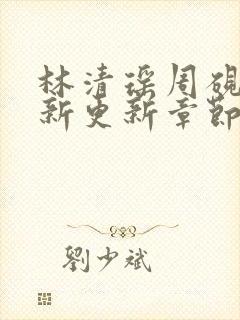 林清瑶周砚
新更新章節
劉少斌